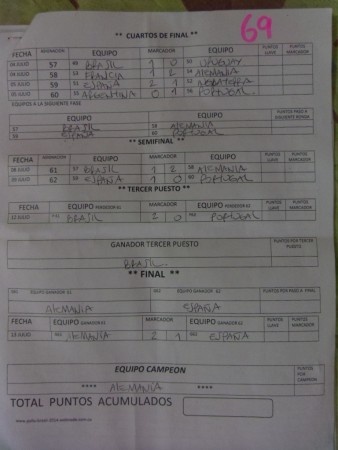 69
** CUARTOS DE FINAL **
FECHA ASIGNACION EQUIPO MARCADOR EQUIPO PUNTOS LLAVE PUNTOS MARCADOR
04 JULIO 57 BRASIL 1 0 URUGUAY
04 JULIO 58 FRANCIA 1 2 ALEMANIA
05 JULIO 59 ESPAÑA 2 1 INGLATERRA
05 JULIO 60 ARGENTINA 0 1 PORTUGAL
EQUIPOS A LA SIGUIENTE FASE
57 BRASIL 58 ALEMANIA
59 ESPAÑA 60 PORTUGAL
** SEMIFINAL **
FECHA ASIGNACION EQUIPO MARCADOR EQUIPO PUNTOS LLAVE PUNTOS MARCADOR
08 JULIO 61 57 BRASIL 1 2 58 ALEMANIA
09 JULIO 62 59 ESPAÑA 1 0 60 PORTUGAL
** TERCER PUESTO **
FECHA EQUIPO PERDEDOR 61 MARCADOR EQUIPO PERDEDOR 62 PUNTOS LLAVE PUNTOS MARCADOR
12 JULIO BRASIL 2 0 PORTUGAL
GANADOR TERCER PUESTO PUNTOS POR TERCER PUESTO
BRASIL
** FINAL **
EQUIPO GANADOR 61 EQUIPO GANADOR 62 PUNTOS POR PASO A FINAL
ALEMANIA ESPAÑA
FECHA EQUIPO GANADOR 61 MARCADOR EQUIPO GANADOR 62 PUNTOS LLAVE PUNTOS MARCADOR
13 JULIO ALEMANIA 2 1 ESPAÑA
EQUIPO CAMPEON PUNTOS POR CAMPEON
**** ALEMANIA ****
TOTAL PUNTOS ACUMULADOS